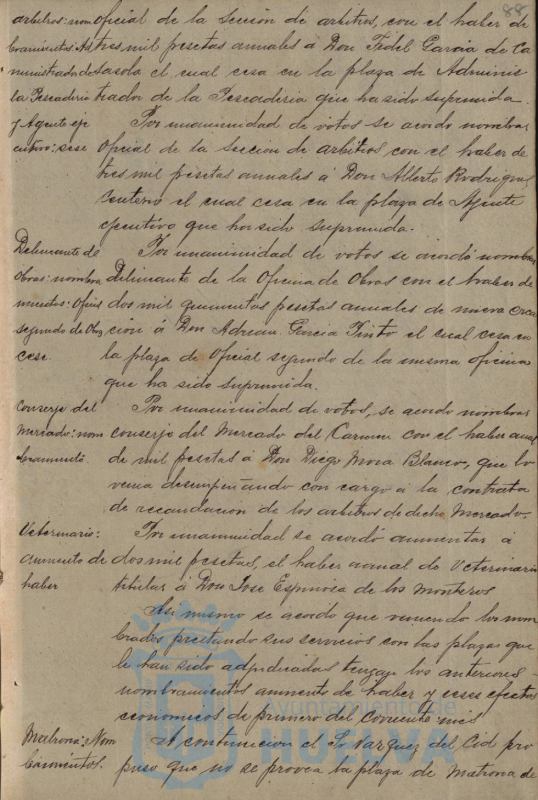 88
arbitros: nom
bramientos: Ad
ministrador de
la Pescaderia
y Agente eje
cutivo: cese
oficial de la Sección de arbitros, con el haber de
tres mil pesetas anuales á Don Fidel Garcia de Ca
sasola el cual cesa en la plaza de Adminis
trador de la Pescaderia que ha sido suprimida.
Por unanimidad de votos se acordo nombrar
oficial de la Sección de arbitros con el haber de
tres mil pesetas anuales á Don Alberto Rodriguez
Centeno el cual cesa en la plaza de Agente
ejecutivo que ha sido suprimida.
Delineante de
Obras: nombra
miento: Oficial
segundo de Obras
cese.
Por unanimidad de votos se acordó nombrar
delineante de la Oficina de Obras con el haber de
dos mil quinientas pesetas anuales de nueva crea
ción á Don Adrian Garcia Pinto el cual cesa en
la plaza de Oficial segundo de la misma oficina
que ha sido suprimida.
Conserje del
Mercado: nom
bramiento
Por unanimidad de votos, se acordo nombrar
conserje del Mercado del Carmen con el haber anual
de mil pesetas á Don Diego Mora Blanco, que lo
venia desempeñando con cargo á la contrata
de recaudación de los arbitros de dicho Mercado.
Veterinario:
aumento de
haber
Por unanimidad se acordó aumentar á
dos mil pesetas, el haber anual de Veterinario
titular á Don Jose Espinosa de los Monteros
Asi mismo se acordo que viniendo los nom
brados prestando sus servicios con las plazas que
le han sido adjudicadas tengan los anteriores
nombramientos aumento de haber y cese efectos
economicos de primero del corriente mes
Matrona: Nom
bramientos.
A continuacion el Sr Vazquez del Cid pro
puso que no se provea la plaza de Matrona de
Ayuntamiento de
HUELVA